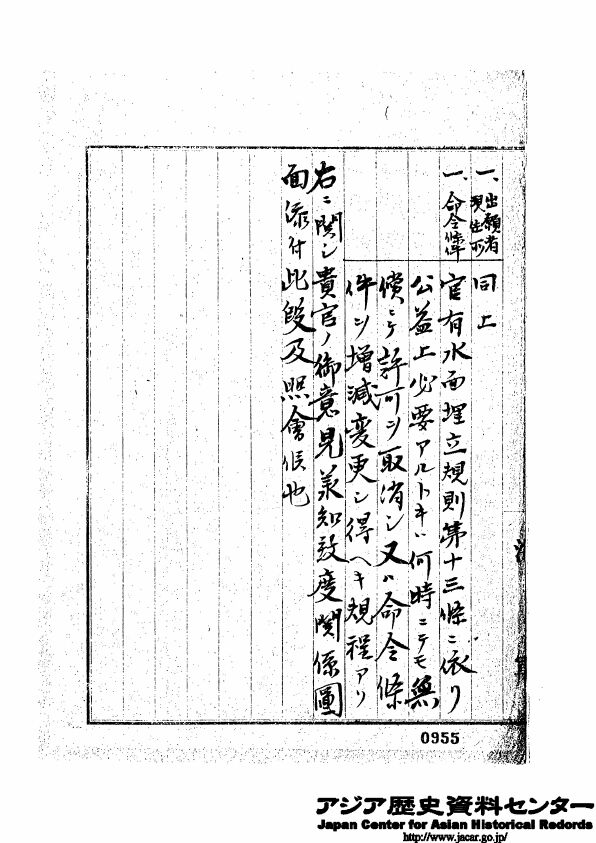 一、出願者
現住所
同上
一、命令條件
官有水面埋立規則第十三條ニ依リ
公益上必要アルトキハ何時ニテモ無
償ニテ許可ヲ取消シ又ハ命令條
件ヲ増減変更シ得ヘキ規程アリ
右ニ関シ貴官ノ御意見承知致度関係圖
面添付此段及照會候也
0955
アジア歴史資料センター
Japan Center for Asian Historical Records
http://www.jacar.go.jp/